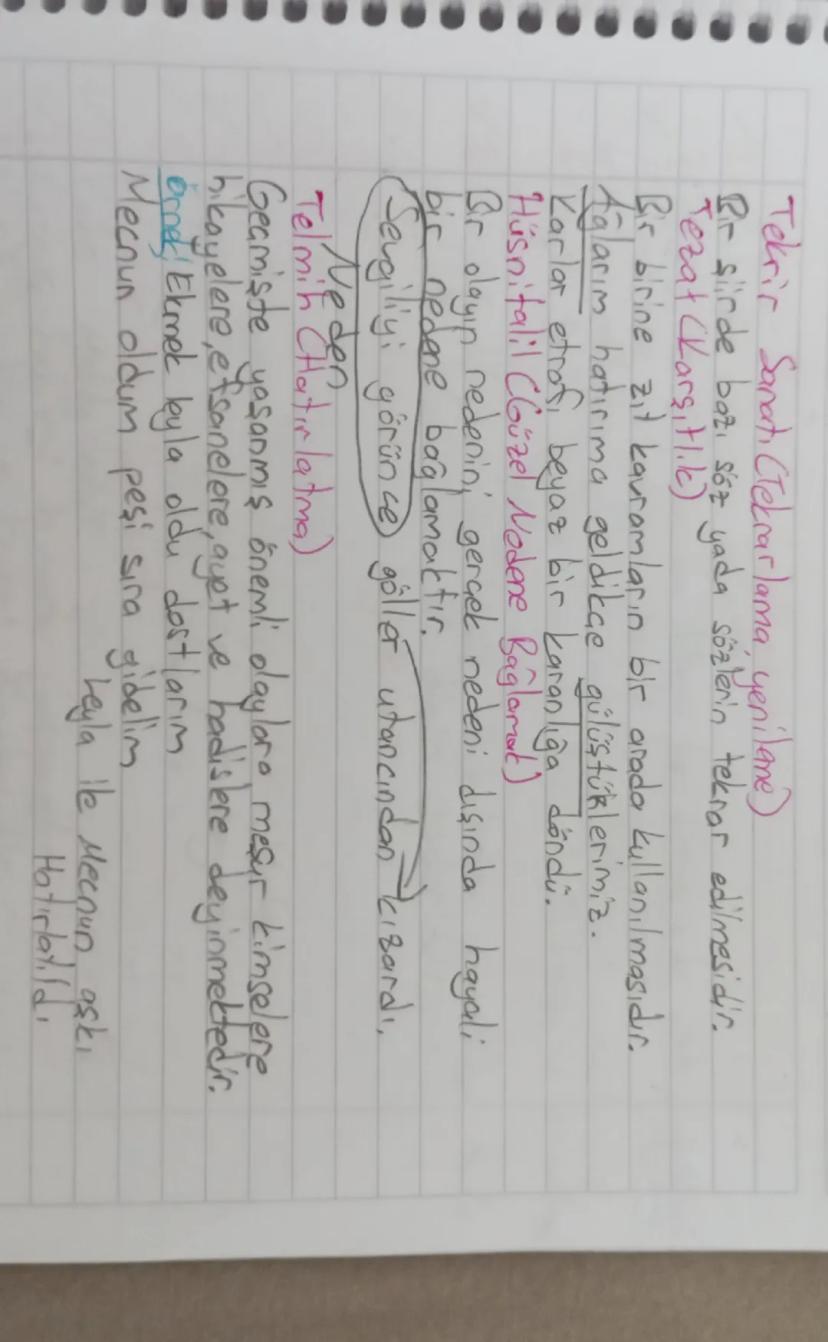 Tekrir Sanatı (Tekrarlama, yenileme)
Bir şiirde bazı söz yada sözlerin tekrar edilmesidir.
Tezat (Karşıtlık)
Bir birine zıt kavramların bir arada kullanılmasıdır.
Ağlarım hatırıma geldikçe gülüştüklerimiz.
Karlar etrafı beyaz bir karanlığa döndü.
Hüsnitalil (Güzel Nedene Bağlamak)
Bir olayın nedenini gerçek nedeni dışında hayali
bir nedene bağlamaktır.
Sevgiliyi görünce güller utancından kızardı.
Neden
Telmih (Hatırlatma)
Geçmişte yaşanmış önemli olaylara meşur kimselere
hikayelere, efsanelere, ayet ve hadislere deyinmektedir.
Örnek: Ekmek leyla oldu dostlarım
Mecnun oldum peşi sıra gidelim
Leyla ile Mecnun aşkı
Hatırlatıldı